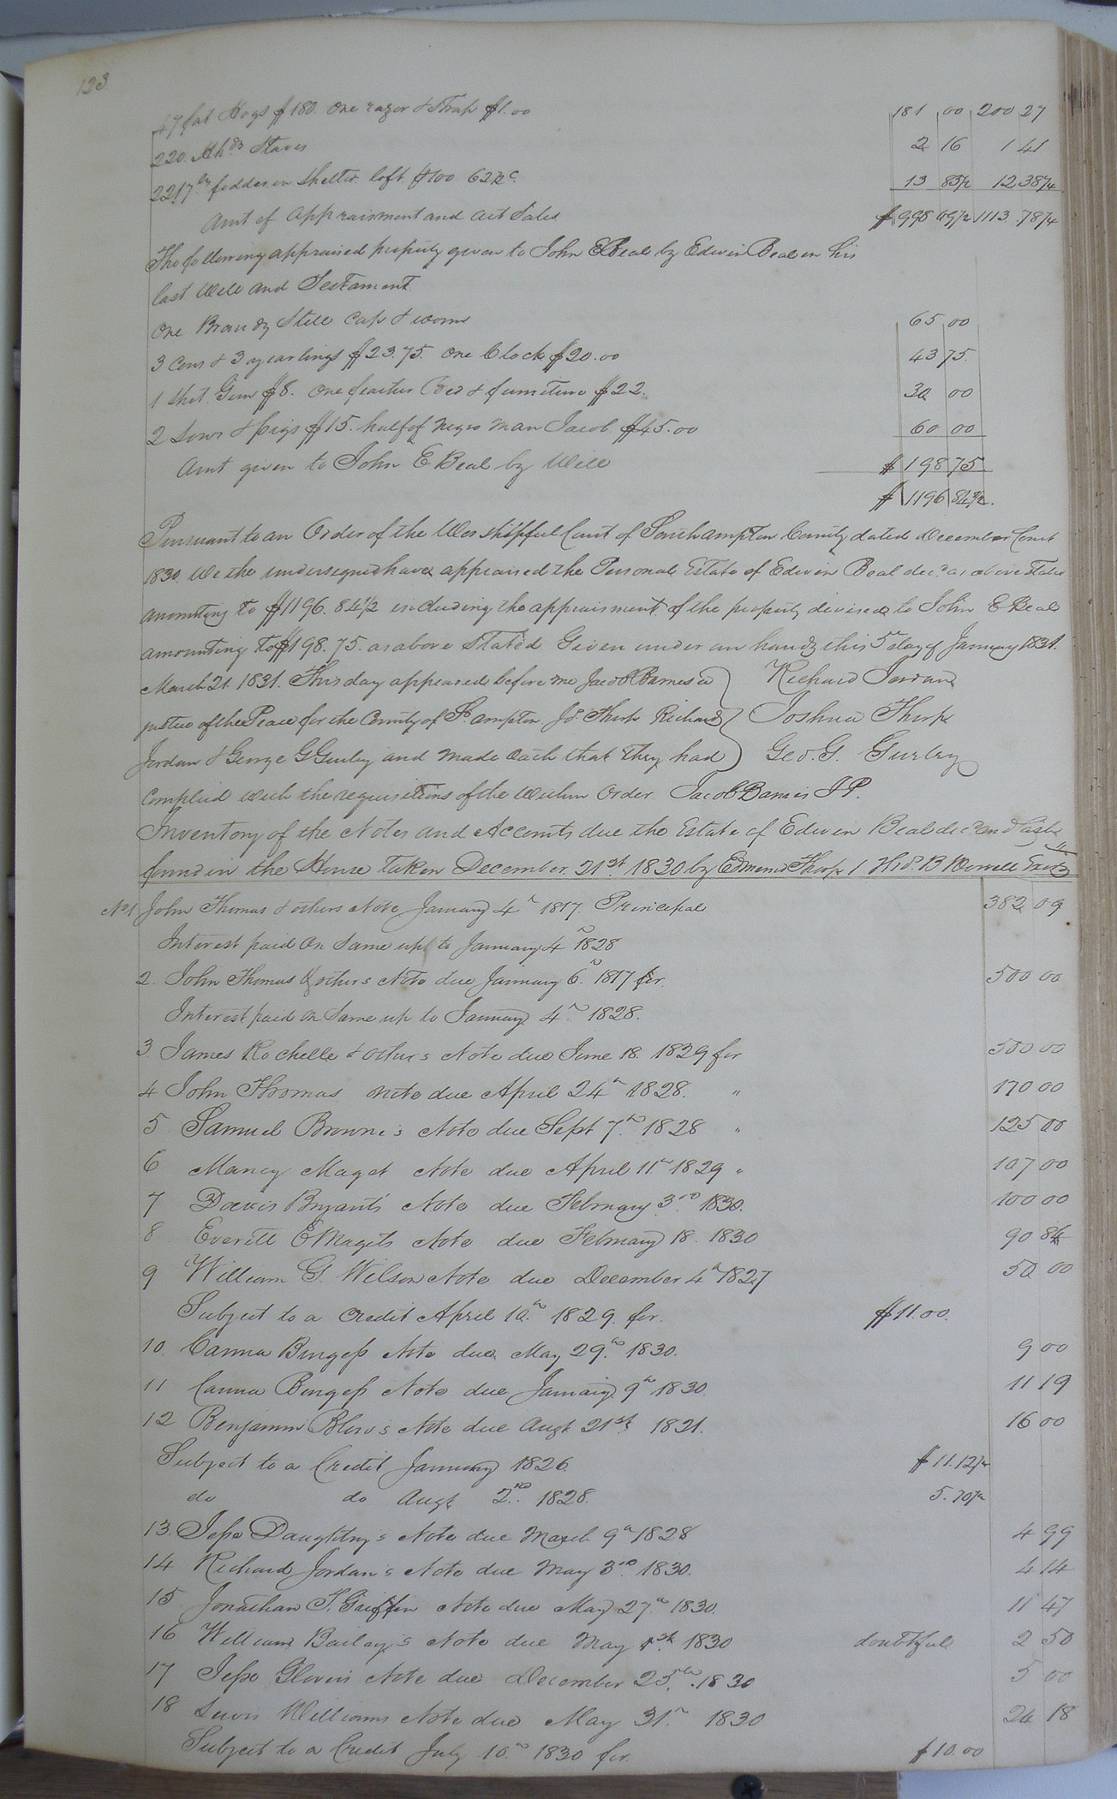 123
47 fat Hogs $180. One razor & Strap $1.00 181 00 200 27
220. Hhds Staves 2 16 1 41
2217 lbs fodder in shelter loft $100 62½c. 13 85½ 12 38¼
Amt of appraisment and act Sales $998 09½ 1113 78¼
The following appraised property given to John E Beal by Edwin Beal in his
last Will and Testament
One Brandy Still Cap & worm 65 00
3 Cows & 3 yearlings $23.75. One Clock $20.00 43 75
1 Shot Gun $8. One feather Bed & furniture $22. 30 00
2 Sows & pigs $15. half of Negro man Jacob $45.00 60 00
Amt given to John E Beal by Will $198 75
$1196 84½
Pursuant to an Order of the Worshipful Court of Southampton County dated December Court
1830 We the undersigned have appraised the Personal Estate of Edwin Beal decd as above Stated
amounting to $1196.84½ including the appraisment of the property devised to John E Beal
amounting to $198.75. as above Stated Given under our hands this 5th day of January 1831.
March 21 1831. This day appeared before me Jacob Barnes a Richard Jordan
justice of the Peace for the County of So.ampton Js. Thorp Richard Joshua Thorp
Jordan & George G Gurley and made Oath that they had Geo. G. Gurley
Complied with the requisitions of the Within Order Jacob Barnes J P.
Inventory of the Notes and Accounts due the Estate of Edwin Beal decd and Cash
found in the House taken December 21st 1830 by Edmond Thorp & B Worrell
No 1 John Thomas & others Note January 4th 1817. Principal 382 09
Interest paid on Same up to January 4th 1828
2. John Thomas & others Note due January 6th 1817 for. 500 00
Interest paid on Same up to January 4th 1828.
3 James Rochelle & others Note due June 18 1829 for 500 00
4 John Thomas note due April 24th 1828. " 170 00
5 Samuel Browne's Note due Sept 7th 1828 " 125 00
6 Mancy Maget Note due April 11th 1829 " 107 00
7 Davis Bryant's Note due February 3rd 1830. 100 00
8 Everett E Magets Note due February 18 1830 90 84
9 William G. Wilson Note due December 4th 1827 50 00
Subject to a Credit April 10th 1829. for. $11.00.
10 Canna Burgess Note due May 29th 1830. 9 00
11 Canna Burgess Note due January 9th 1830. 11 19
12 Benjamin Blow's Note due Augt 21st 1821. 16 00
Subject to a Credit January 1826 $11.12½
do do Augt 2nd 1828. 5.70½
13. Jesse Daughtry's Note due March 9th 1828 4 99
14 Richard Jordan's Note due May 3rd 1830. 4 14
15 Jonathan T. Griffin Note due May 27th 1830. 11 47
16 William Bailey's Note due May 1st 1830 doubtfull 2 50
17 Jesse Glover's Note due December 25th 1830 5 00
18 Lewis Williams Note due May 31st 1830 24 18
Subject to a Credit July 10th 1830 for. $10.00